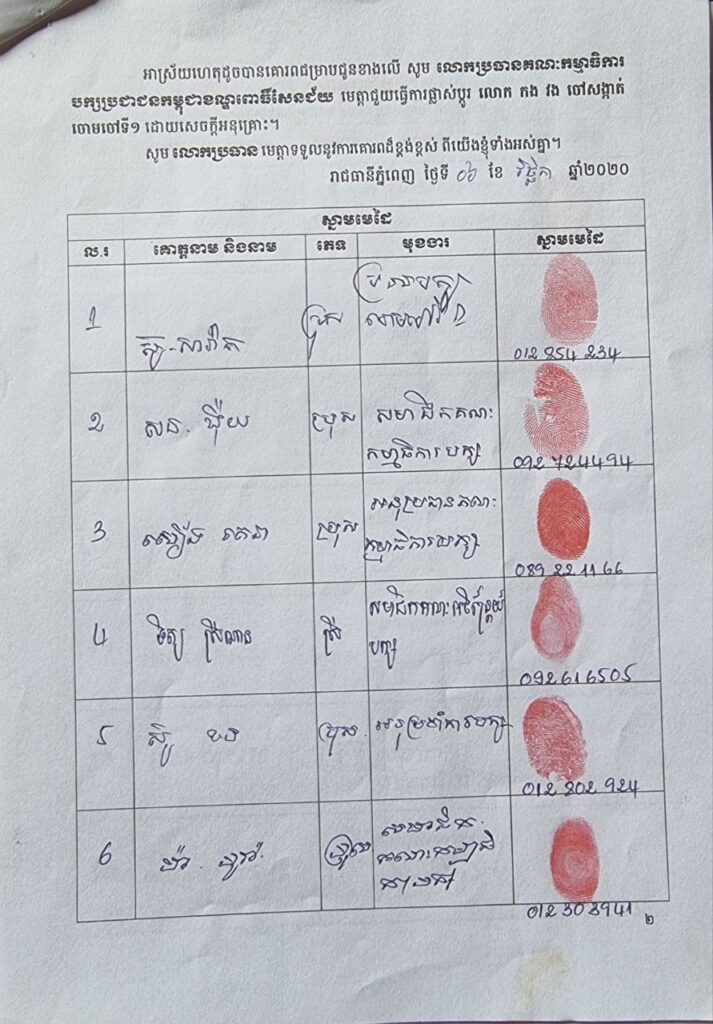 អាស្រ័យហេតុដូចបានគោរពជម្រាបជូនខាងលើ សូម លោកប្រធានគណៈកម្មាធិការ
បក្សប្រជាជនកម្ពុជាខណ្ឌពោធិ៍សែនជ័យ មេត្តាជួយធ្វើការផ្លាស់ប្តូរ លោក កង វង ចៅសង្កាត់
ចោមចៅទី១ ដោយសេចក្តីអនុគ្រោះ។
សូម លោកប្រធាន មេត្តាទទួលនូវការគោរពដ៏ខ្ពង់ខ្ពស់ ពីយើងខ្ញុំទាំងអស់គ្នា។
រាជធានីភ្នំពេញ ថ្ងៃទី 06 ខែ វិច្ឆិកា ឆ្នាំ២០២០
ស្នាមមេដៃ
ល.រ គោត្តនាម និងនាម ភេទ មុខងារ ស្នាមមេដៃ
1 ប្រុស
012 854 234
2 សន. ប្រុស សមាជិកគណៈ
កម្មាធិការបក្ស
092 724494
3 ប្រុស អនុប្រធានគណៈ
កម្មាធិការបក្ស
089 22 11 66
4 ស្រី សមាជិកគណៈ
បក្ស
092616505
5 ប្រុស
012 202 924
6 ប្រុស សមាជិក
គណៈកម្មាធិ
ការបក្ស
012 308941
២